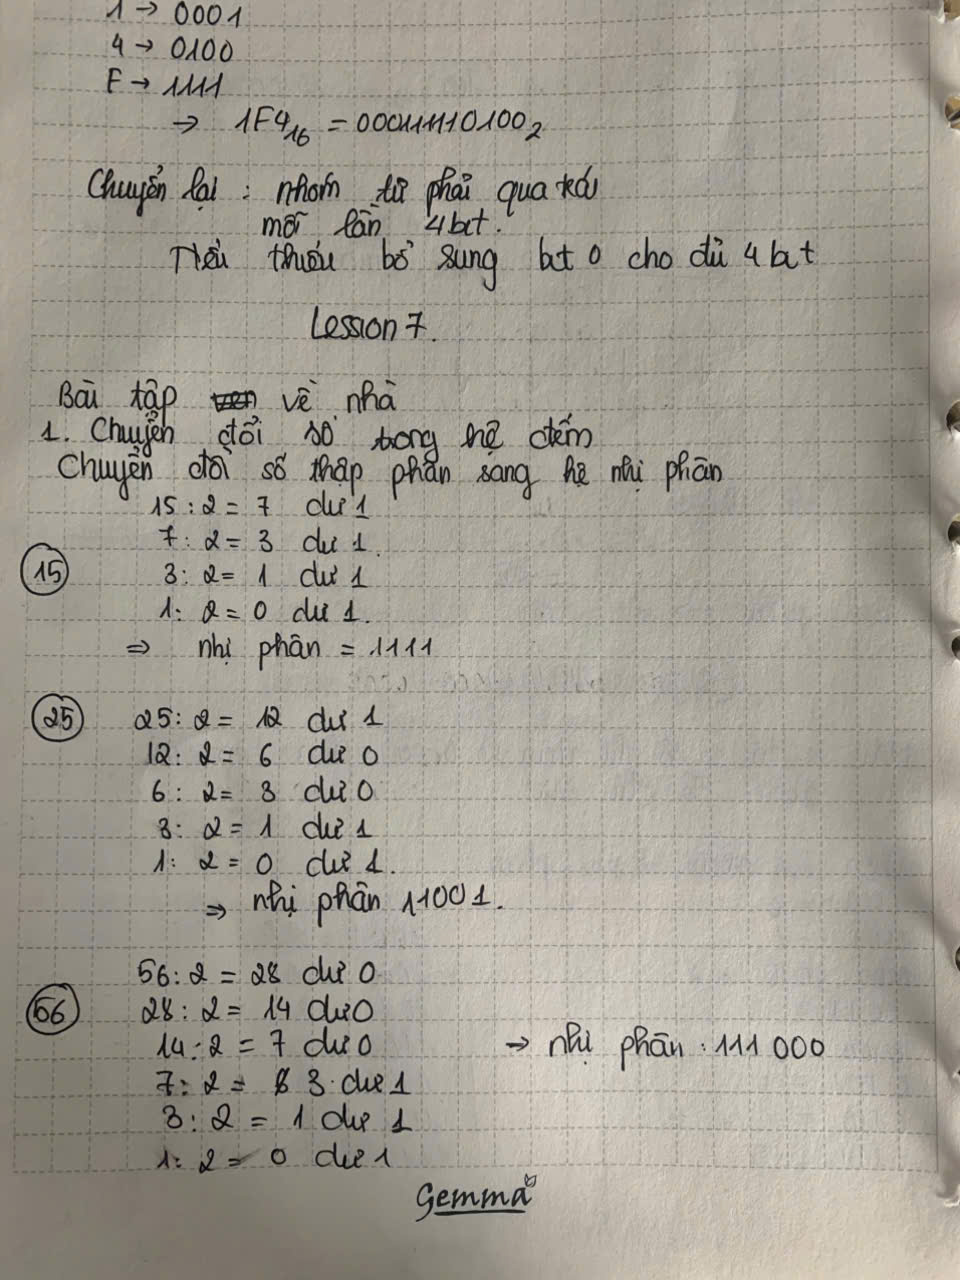 1 → 0001
4 → 0100
F → 1111
→ 1F4₁₆ = 000111110100₂
Chuyển lại : nhóm từ phải qua trái
mỗi lần 4 bit.
Nếu thiếu bổ sung bit 0 cho đủ 4 bit
Lession 7.
Bài tập về nhà
1. Chuyển đổi số trong hệ đếm
Chuyển đổi số thập phân sang hệ nhị phân
15 : 2 = 7 dư 1
7 : 2 = 3 dư 1.
15 3 : 2 = 1 dư 1
1 : 2 = 0 dư 1.
⇒ nhị phân = 1111
25 25 : 2 = 12 dư 1
12 : 2 = 6 dư 0
6 : 2 = 3 dư 0
3 : 2 = 1 dư 1
1 : 2 = 0 dư 1.
⇒ nhị phân 11001.
56 : 2 = 28 dư 0
56 28 : 2 = 14 dư 0
14 : 2 = 7 dư 0 → nhị phân : 111 000
7 : 2 = 3 dư 1
3 : 2 = 1 dư 1
1 : 2 = 0 dư 1
Gemma